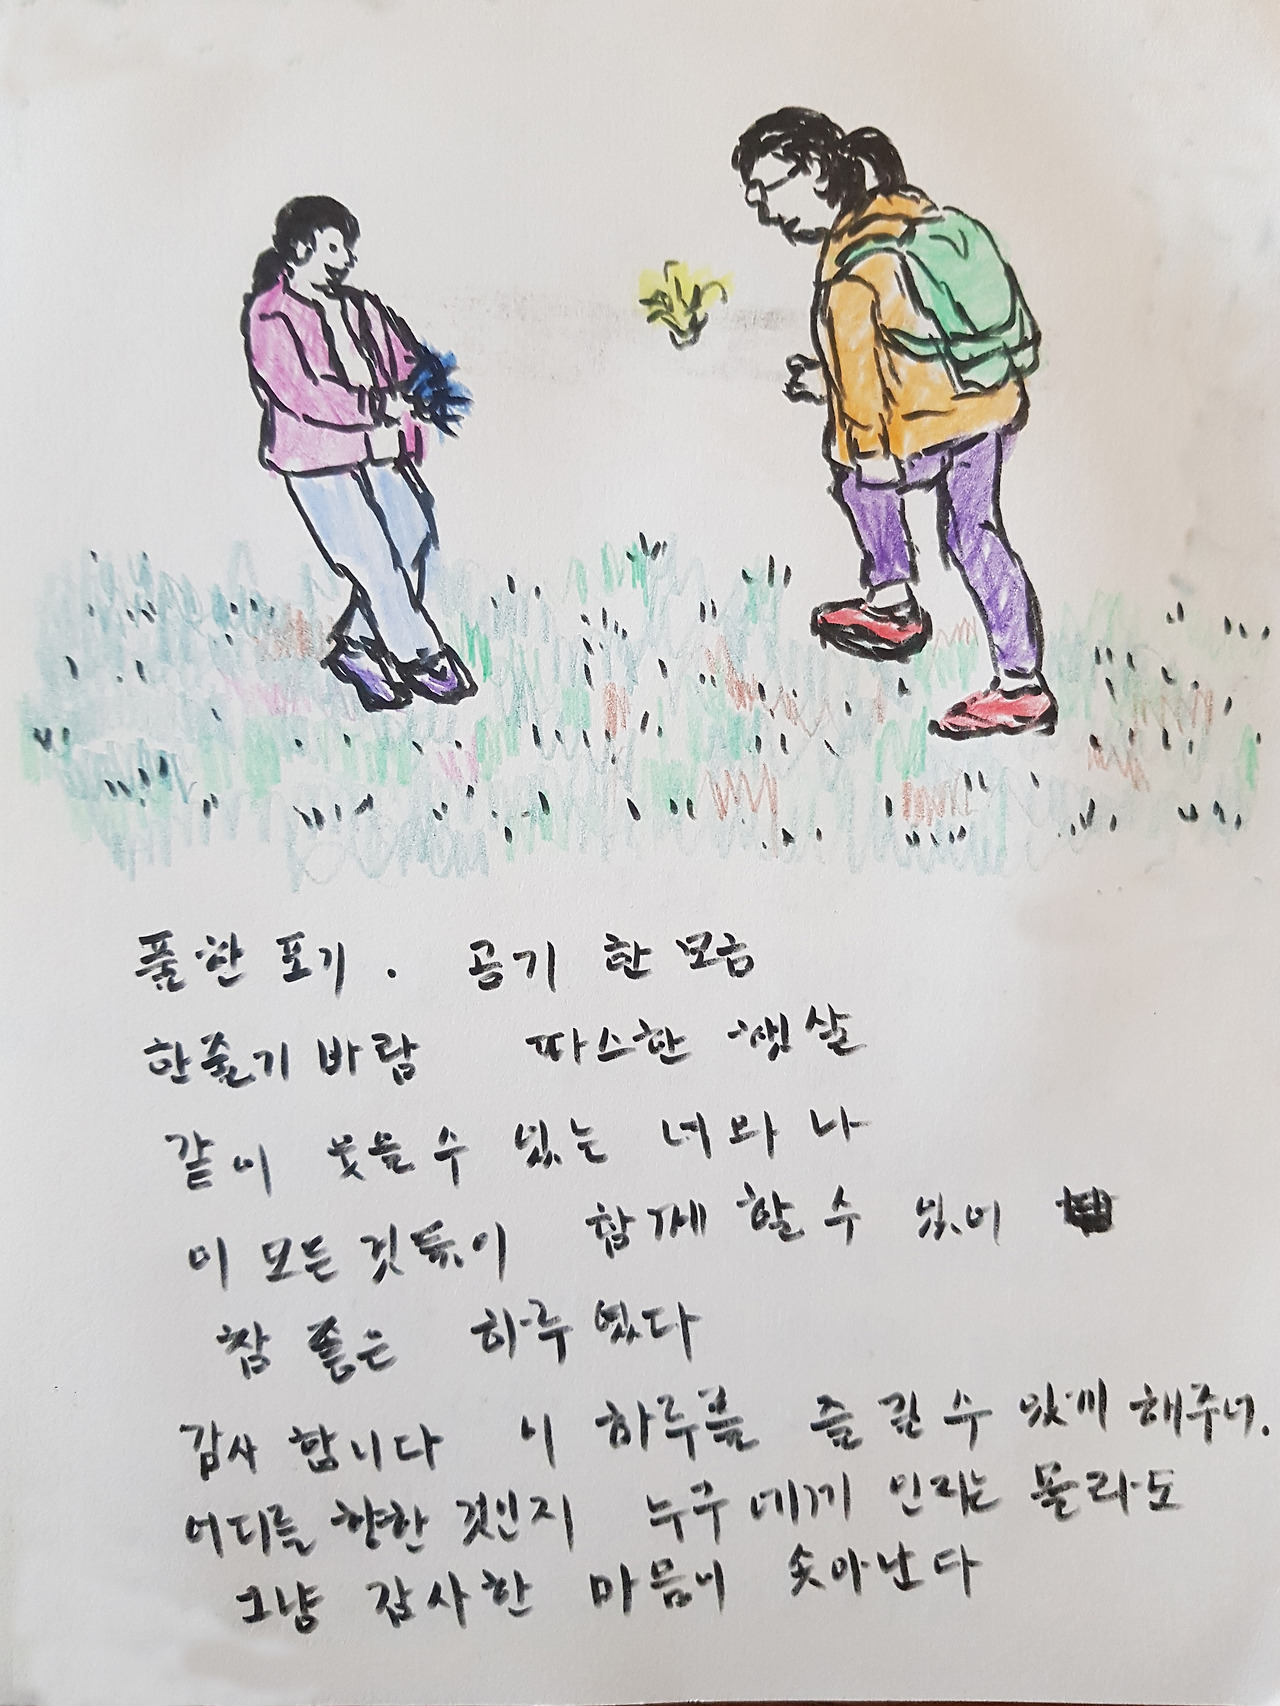 풀 한 포기. 공기 한 모금
한줄기 바람 따스한 햇살
같이 웃을 수 있는 너와 나
이 모든 것들이 함께 할 수 있어
참 좋은 하루였다
감사 합니다 이 하루를 즐길 수 있게 해주너.
어디를 향한 것인지 누구에게 인지는 몰라도
그냥 감사한 마음이 솟아난다